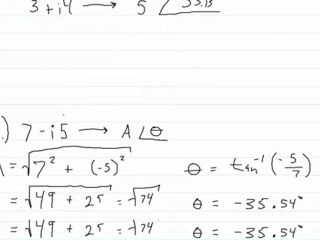 3 + i4 → 5 ∠53.13
.) 7 - i5 → A∠θ
= √7² + (-5)² θ = tan⁻¹(-5/7)
= √49 + 25 = √74 θ = -35.54°
= √49 + 25 = √74 θ = -35.54°